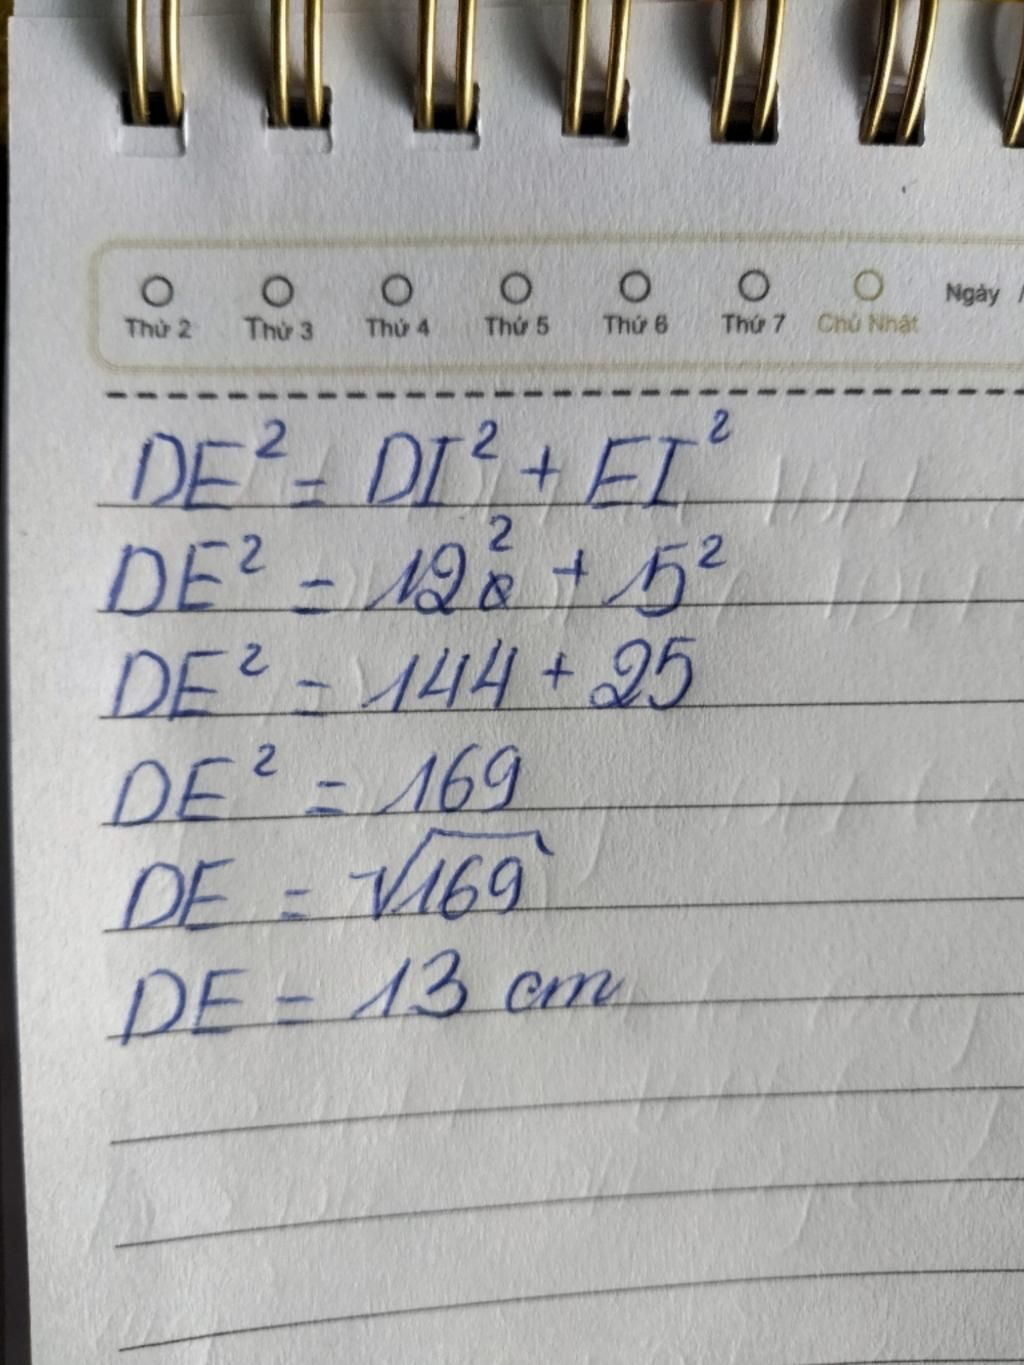 Thứ 2 Thứ 3 Thứ 4 Thứ 5 Thứ 6 Thứ 7 Chủ Nhật Ngày /
DE² = DI² + EI²
DE² = 12² + 5²
DE² = 144 + 25
DE² = 169
DE = √169
DE = 13 cm